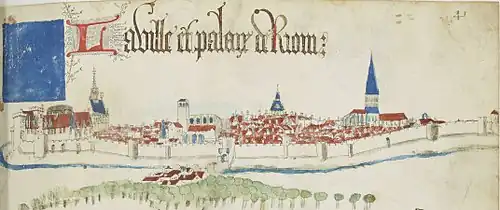 La ville et palaix de Riom :